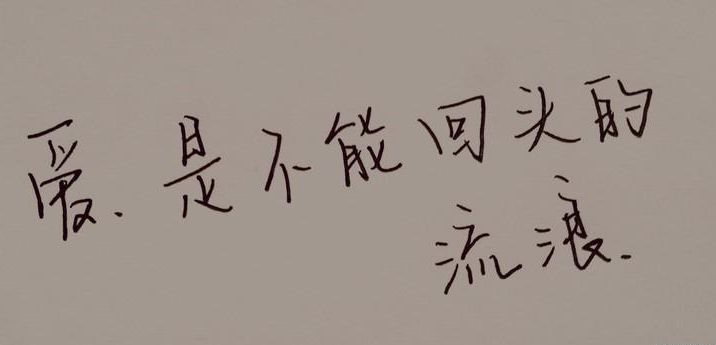 爱.是不能回头的
流浪.